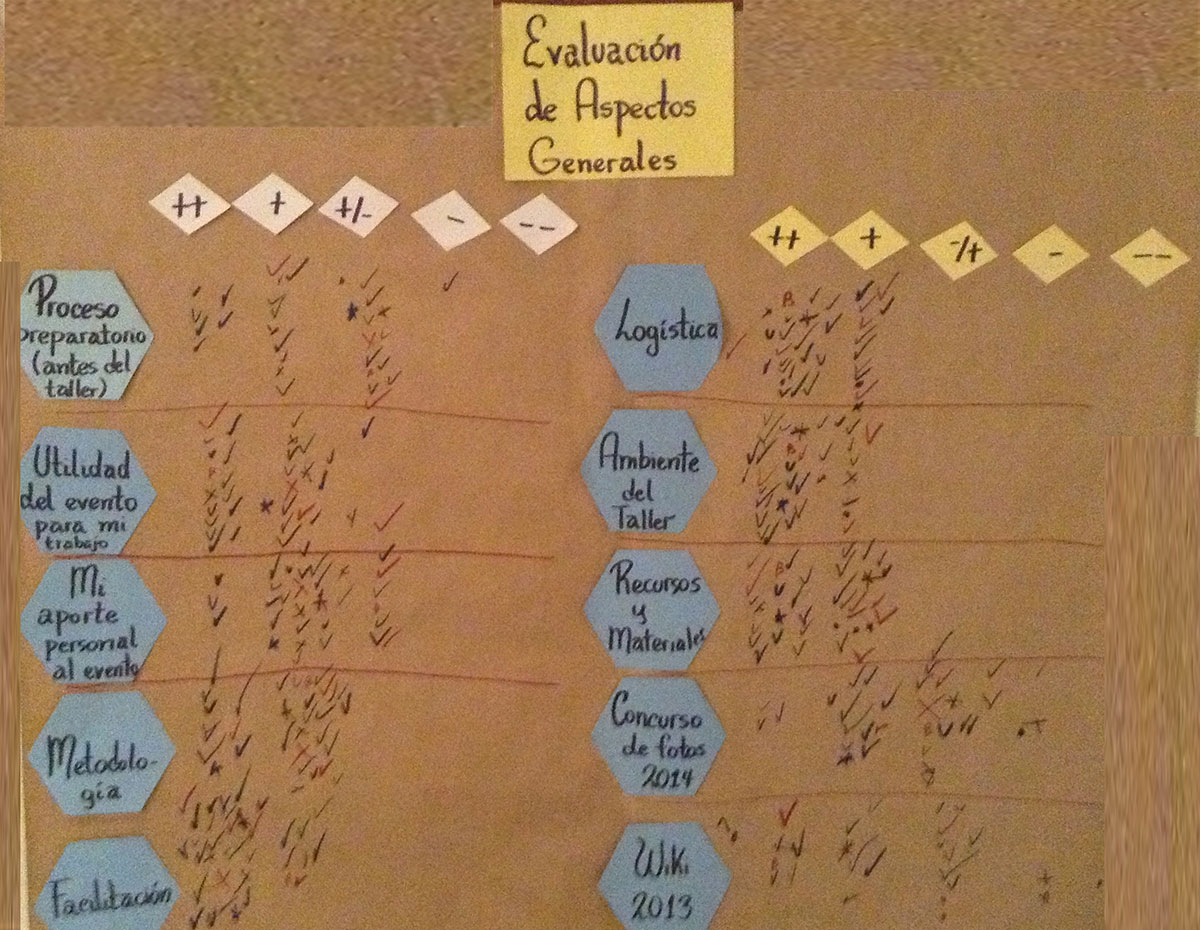 Evaluación
de Aspectos
Generales
++ + +/- - --
++ + -/+ - --
Proceso
preparatorio
(antes del
taller)
Utilidad
del evento
para mi
trabajo
Mi
aporte
personal
al evento
Metodolo-
gía
Facilitación
Logística
Ambiente
del
Taller
Recursos
y
Materiales
Concurso
de fotos
2014
Wiki
2013